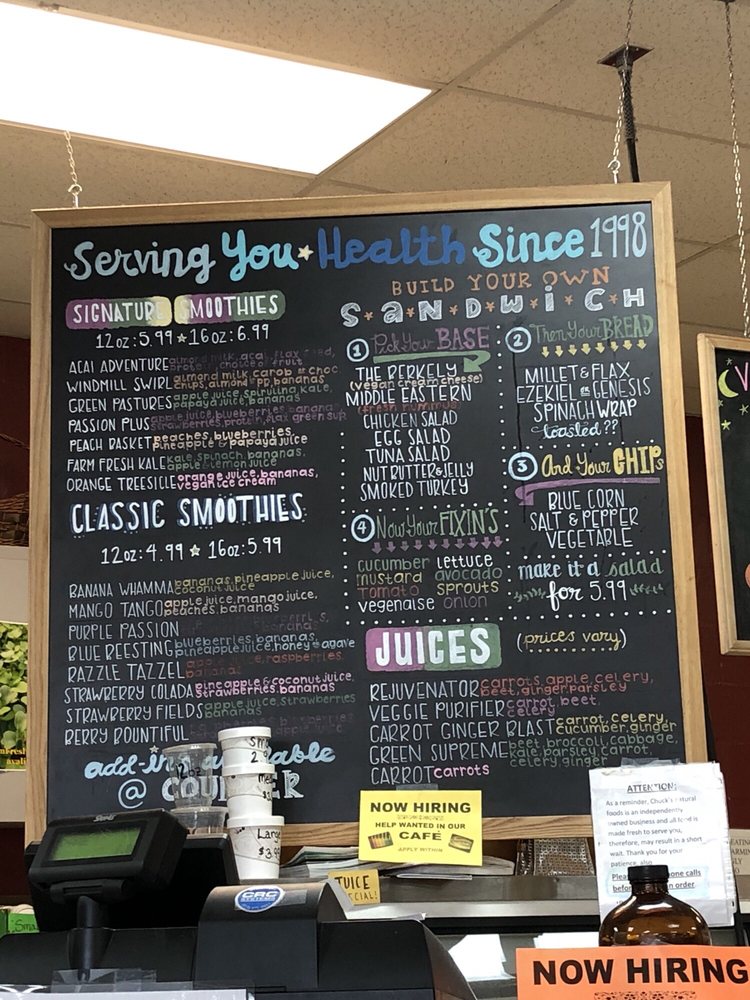 Serving You Health Since 1998
SIGNATURE SMOOTHIES
12oz: 5.99 16oz: 6.99
ACAI ADVENTURE almond milk, acai, flax seed,
WINDMILL SWIRL almond milk, carob choc
chips, almond pp, bananas
GREEN PASTURES apple juice, spirulina, kale,
papaya juice, bananas
PASSION PLUS apple juice, blueberries, banana
strawberries, protein,
PEACH BASKET peaches, blueberries,
pineapple & papaya juice
FARM FRESH KALE kale, spinach, bananas,
apple & lemon juice
ORANGE TREESICLE orange juice, bananas,
vegan ice cream
CLASSIC SMOOTHIES
12oz: 4.99 16oz: 5.99
BANANA WHAMMA bananas, pineapple juice,
coconut juice
MANGO TANGO apple juice, mango juice,
peaches, bananas
PURPLE PASSION
BLUE REESTING blueberries, bananas,
pineapple juice, honey or agave
RAZZLE TAZZEL apple juice, raspberries,
banana
STRAWBERRY COLADA pineapple & coconut juice,
strawberries, bananas
STRAWBERRY FIELDS apple juice, strawberries
bananas
BERRY BOUNTIFUL
@
BUILD YOUR OWN
SANDWICH
1 Pick Your BASE
THE BERKELY
(vegan cream cheese)
MIDDLE EASTERN
(fresh hummus)
CHICKEN SALAD
EGG SALAD
TUNA SALAD
NUT BUTTER & JELLY
SMOKED TURKEY
2 Then Your BREAD
MILLET & FLAX
EZEKIEL or GENESIS
SPINACH WRAP
toasted??
3 And Your CHIPs
BLUE CORN
SALT & PEPPER
VEGETABLE
4 Now Your FIXIN'S
cucumber lettuce
mustard avocado
tomato sprouts
vegenaise onion
make it a salad
for 5.99
JUICES (prices vary)
REJUVENATOR carrots, apple, celery,
beet, ginger, parsley
VEGGIE PURIFIER carrot, beet,
celery
CARROT GINGER BLAST carrot, celery,
cucumber, ginger
GREEN SUPREME beet, broccoli, cabbage
kale, parsley, carrot,
celery, ginger
CARROT carrots
12oz
Large
NOW HIRING
HELP WANTED IN OUR
CAFÉ
APPLY WITHIN
JUICE
CRC
ATTENTION:
As a reminder, Chuck's natural
foods is an independently
owned business and all food is
made fresh to serve you,
therefore, may result in a short
wait. Thank you for your
patience, also
NOW HIRING